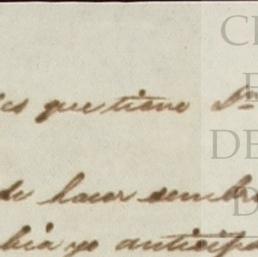 es que tiene Dm
de hacer sembra
bia yo anticipa
CE
DE
D